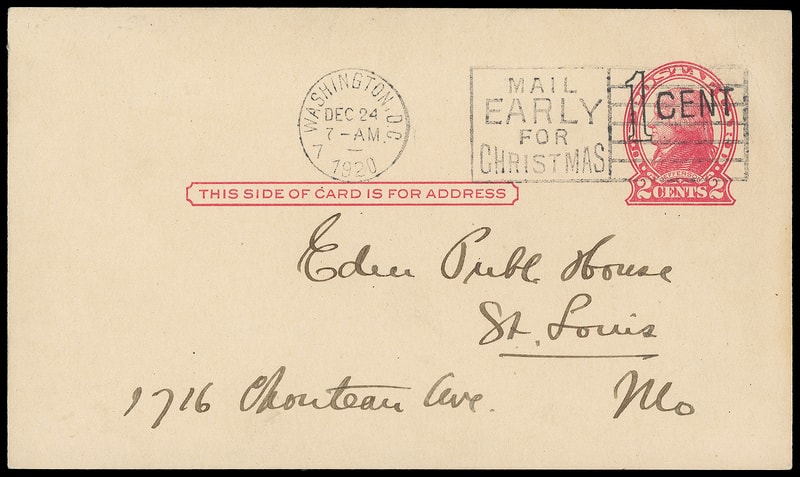 WASHINGTON, D.C.
DEC 24
7-AM.
7 1920
MAIL
EARLY
FOR
CHRISTMAS
POSTAL
1 CENT
JEFFERSON
2 CENTS 2
THIS SIDE OF CARD IS FOR ADDRESS
Eden Publ. House
St. Louis
1716 Chouteau Ave. Mo